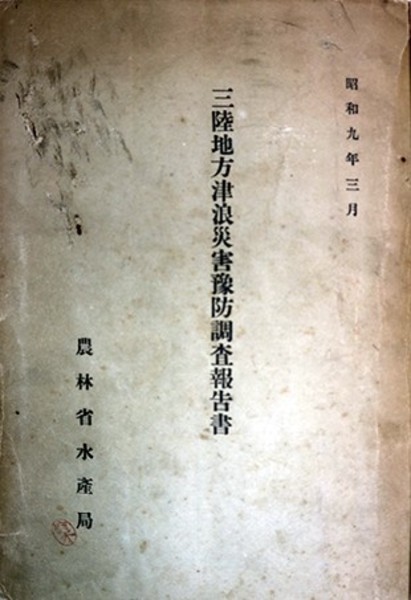 昭和九年三月
三陸地方津浪災害豫防調査報告書
農林省水產局